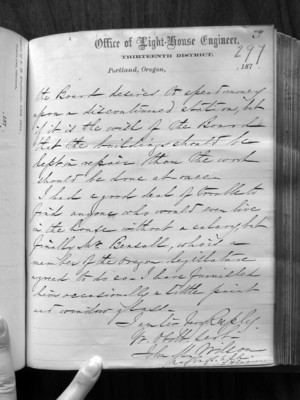 29
Office of Light-House Engineer,
297
THIRTEENTH DISTRICT.
Portland, Oregon, 187
the Board desires to spend money
upon a discontinued station, but
if it is the wish of the Board
that the buildings should be
kept in repair then the work
should be done at once.
I had a good deal of trouble to
find anyone who would even live
in the house without a salary, but
finally Mr Bensell, who is a
member of the Oregon legislature
agreed to do so. I have furnished
him occasionally a little paint
and window glass.
I am Sir Very Resply.
Yr Obdt Servt
Jno. M. Wilson